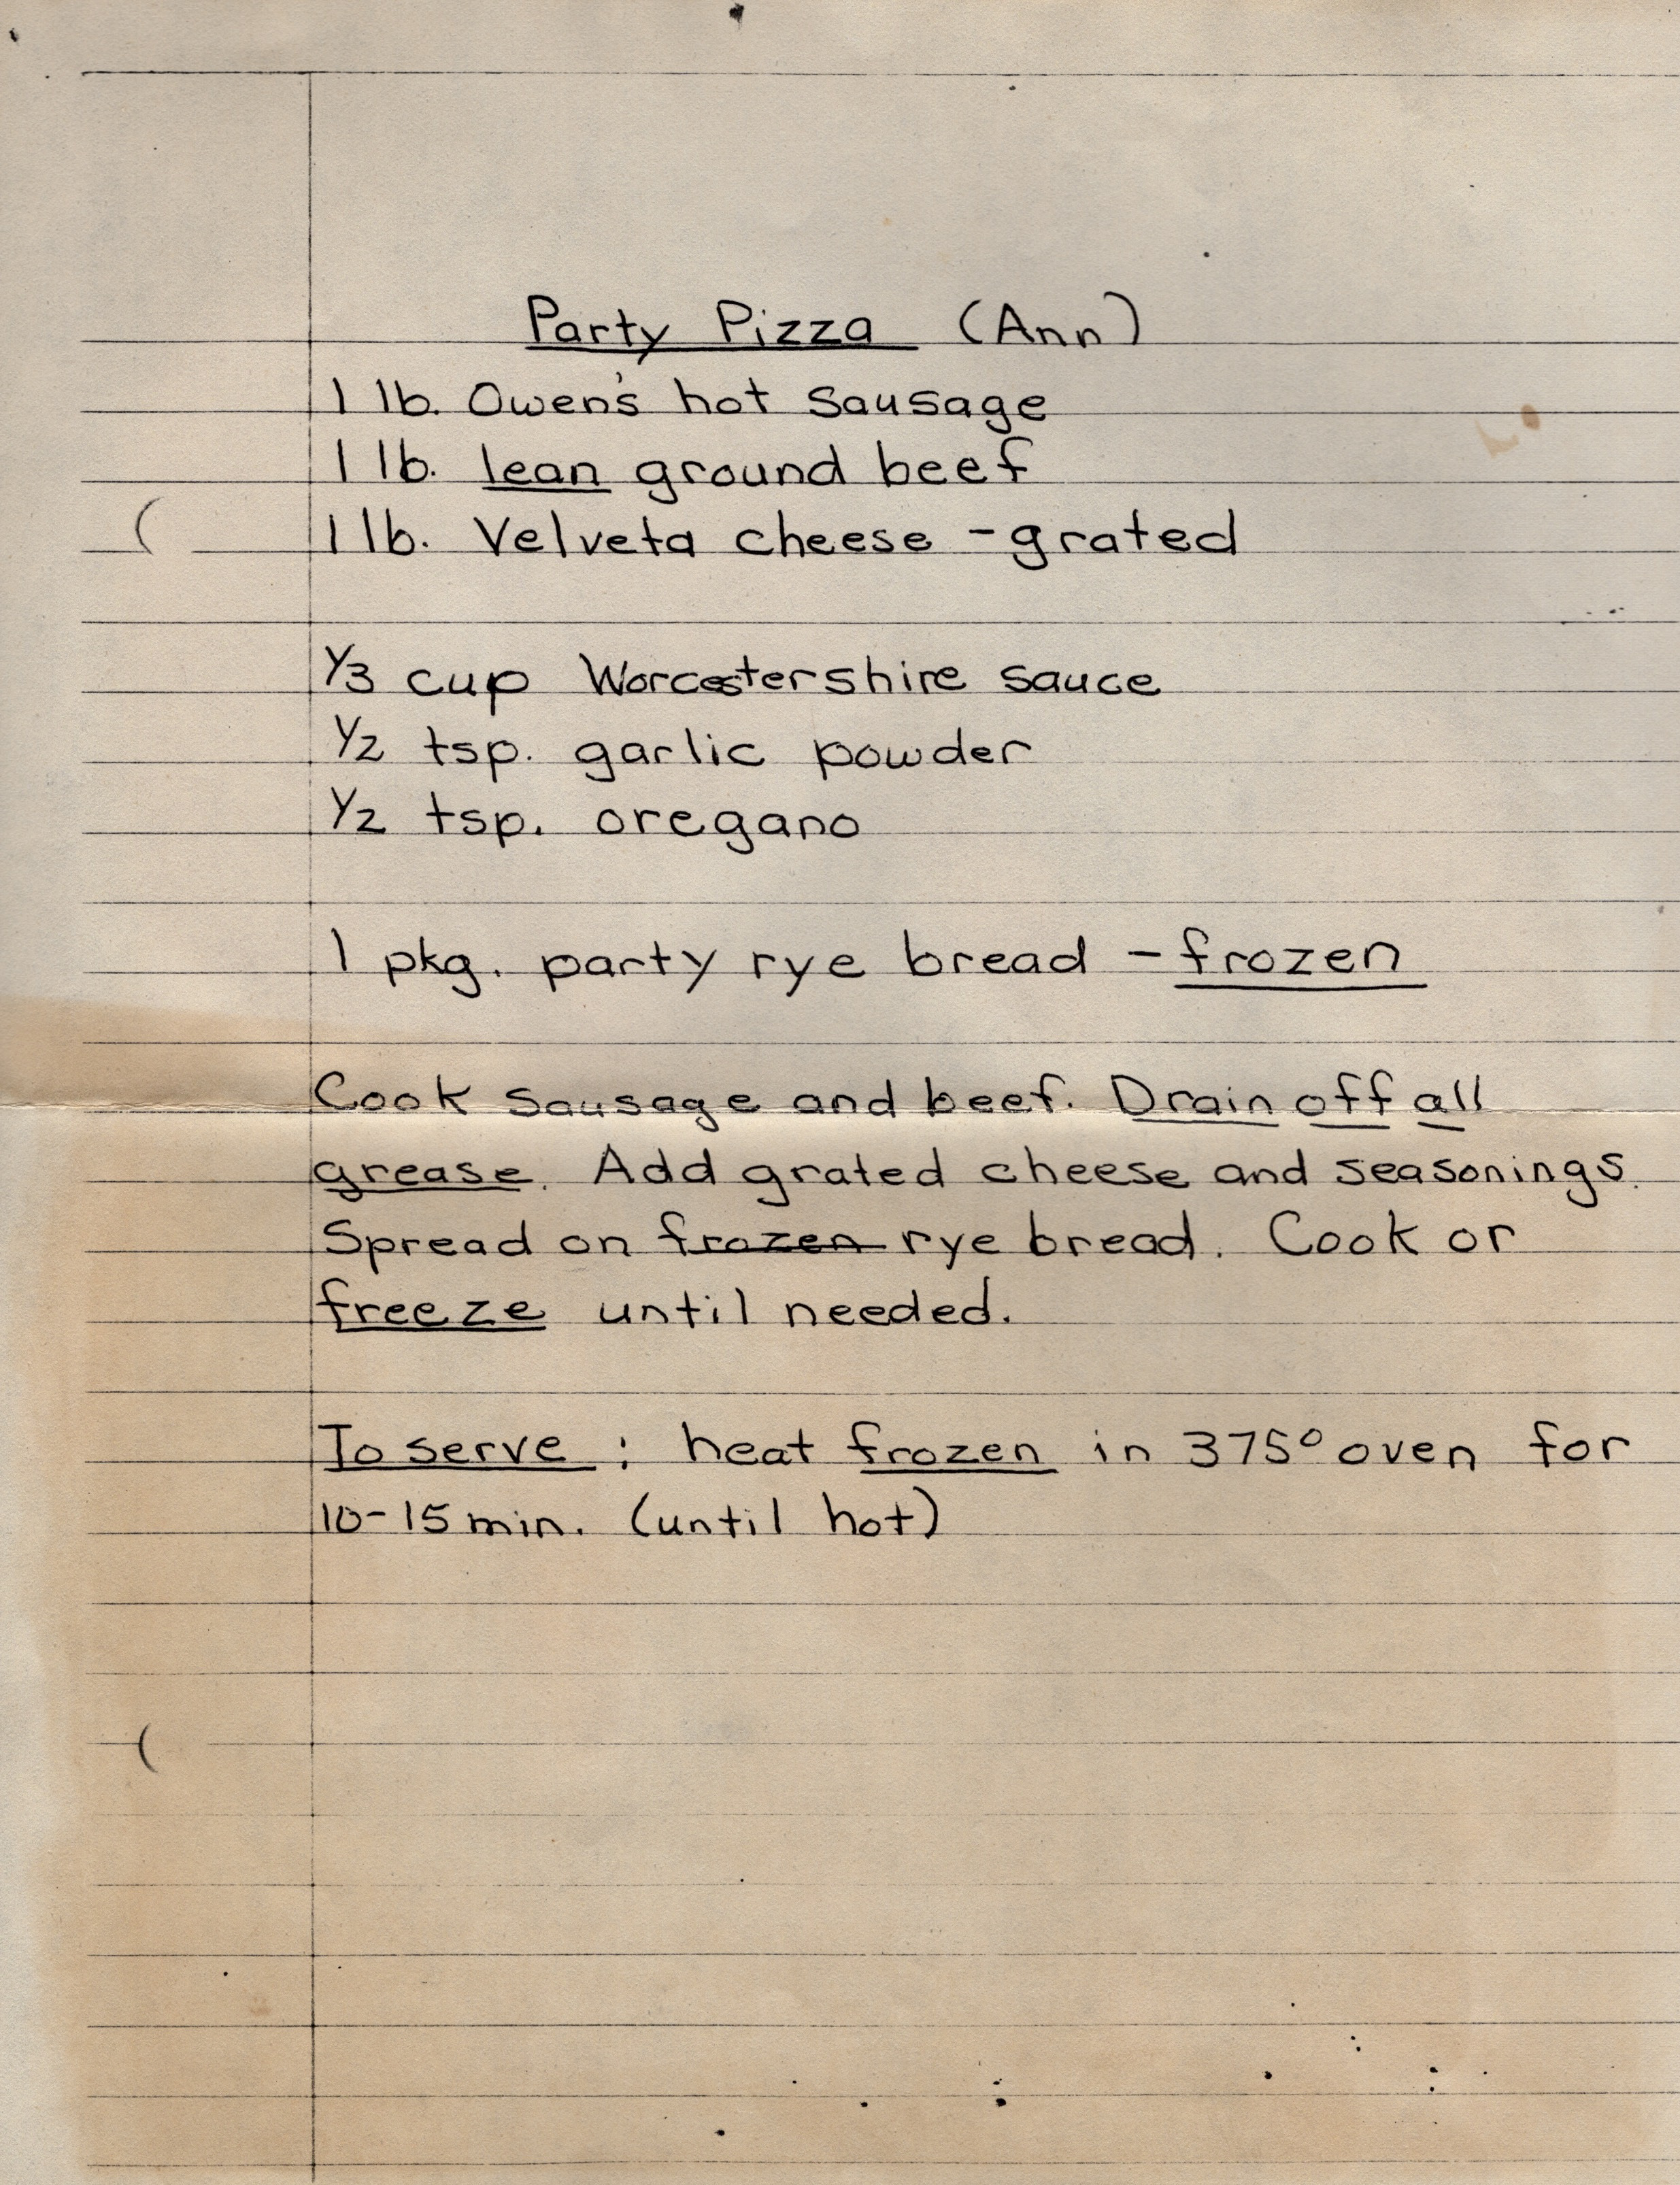 Party Pizza (Ann)
1 lb. Owen's hot sausage
1 lb. lean ground beef
1 lb. Velveta cheese - grated
1/3 cup Worcestershire sauce
1/2 tsp. garlic powder
1/2 tsp. oregano
1 pkg. party rye bread - frozen
Cook sausage and beef. Drain off all
grease. Add grated cheese and seasonings.
Spread on frozen rye bread. Cook or
freeze until needed.
To serve : heat frozen in 375° oven for
10-15 min. (until hot)